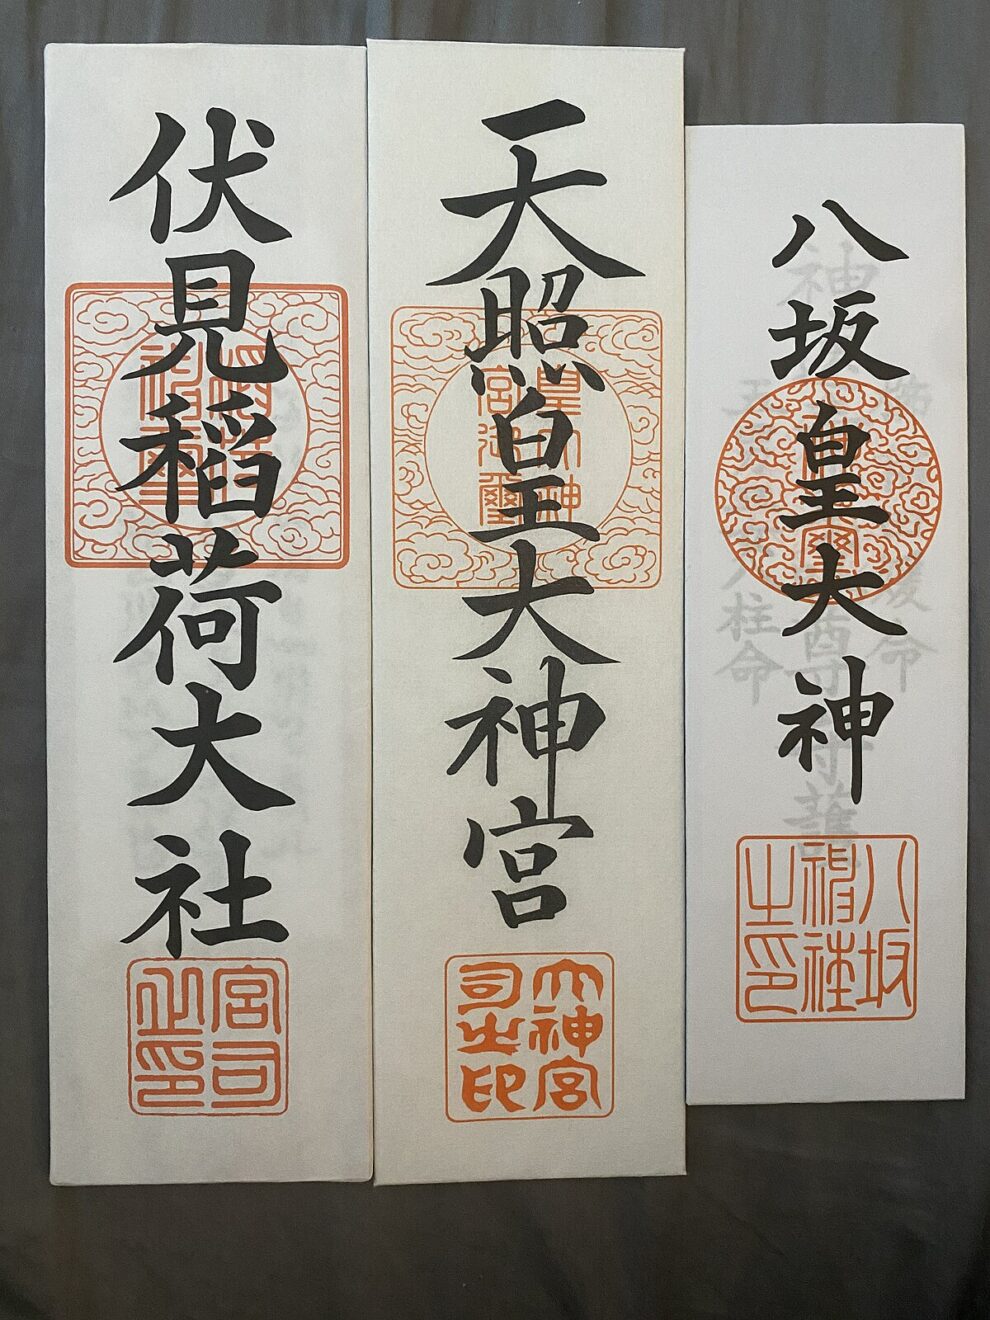 伏見稻荷大社
宮司
之印
天照皇大神宮
皇大神
宮御璽
大神宮
司之印
八坂皇大神
八坂
神社
之印